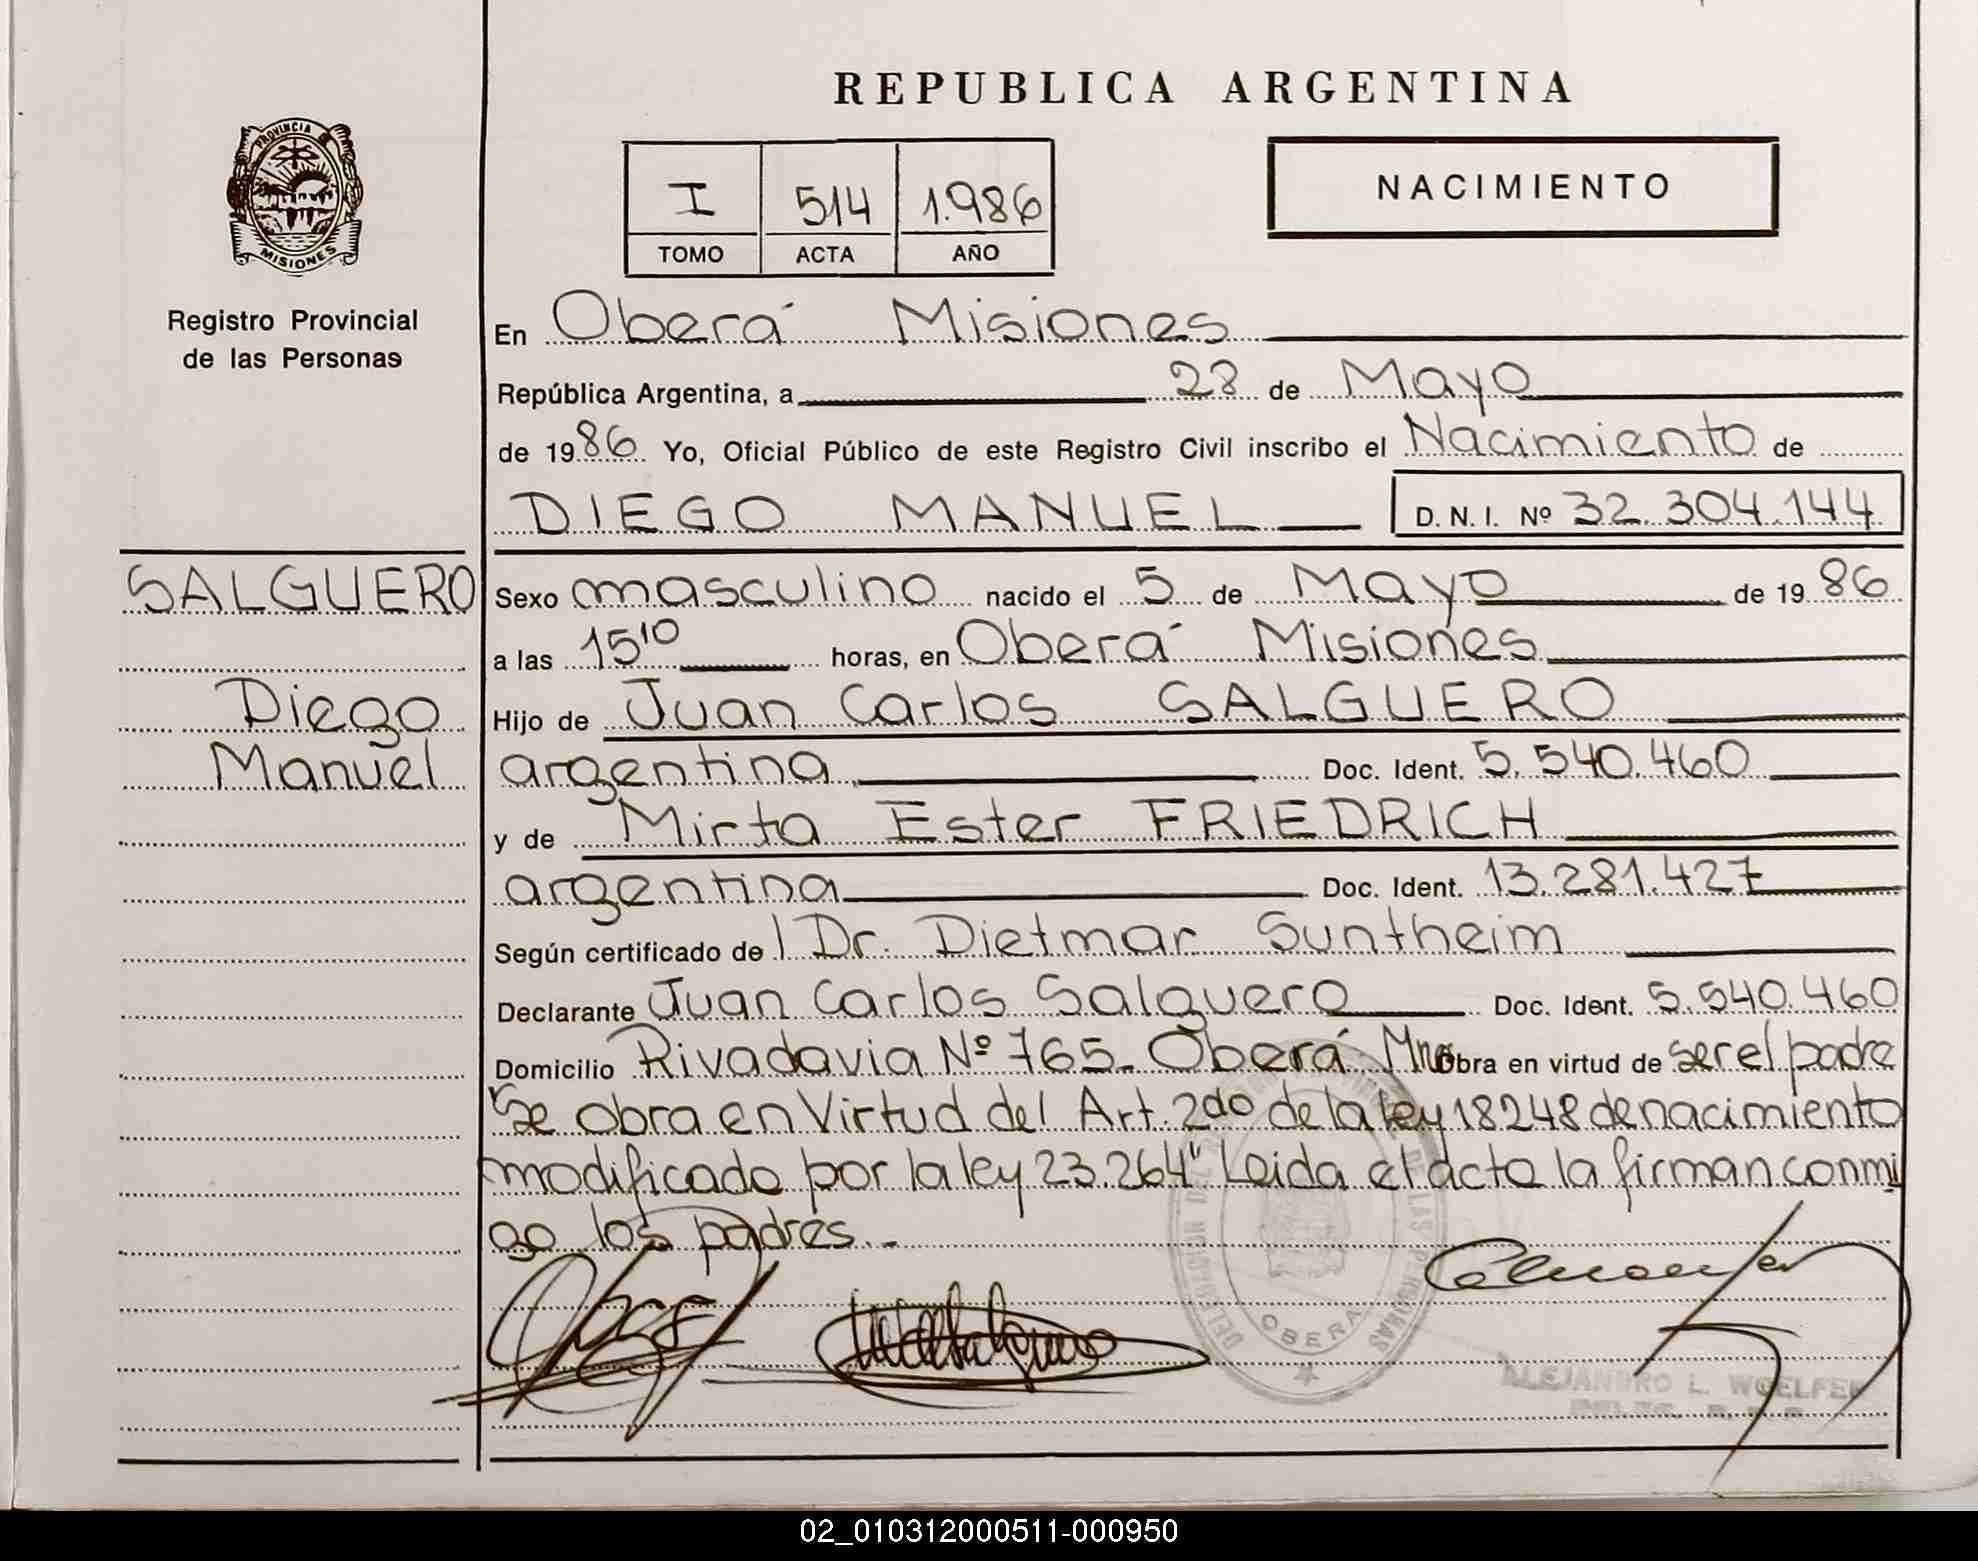 REPUBLICA ARGENTINA
PROVINCIA DE
MISIONES
Registro Provincial
de las Personas
I 514 1.986
TOMO ACTA AÑO
NACIMIENTO
En Oberá Misiones
República Argentina, a 28 de Mayo
de 1986 Yo, Oficial Público de este Registro Civil inscribo el Nacimiento de
DIEGO MANUEL D. N. I. Nº 32.304.144
SALGUERO
Diego
Manuel
Sexo masculino nacido el 5 de Mayo de 1986
a las 15¹⁰ horas, en Oberá Misiones
Hijo de Juan Carlos SALGUERO
argentina Doc. Ident. 5.540.460
y de Mirta Ester FRIEDRICH
argentina Doc. Ident. 13.281.427
Según certificado de l Dr. Dietmar Suntheim
Declarante Juan Carlos Salguero Doc. Ident. 5.540.460
Domicilio Rivadavia Nº 765. Oberá Mnes Obra en virtud de ser el padre
"Se obra en Virtud del Art. 2do de la ley 18248 de nacimiento
modificado por la ley 23.264" Leida el acta la firman conmi
go los padres.-
DELEGACION DEL REGISTRO PROVINCIAL DE LAS PERSONAS
OBERA
ALEJANDRO L. WOELFER
02_010312000511-000950